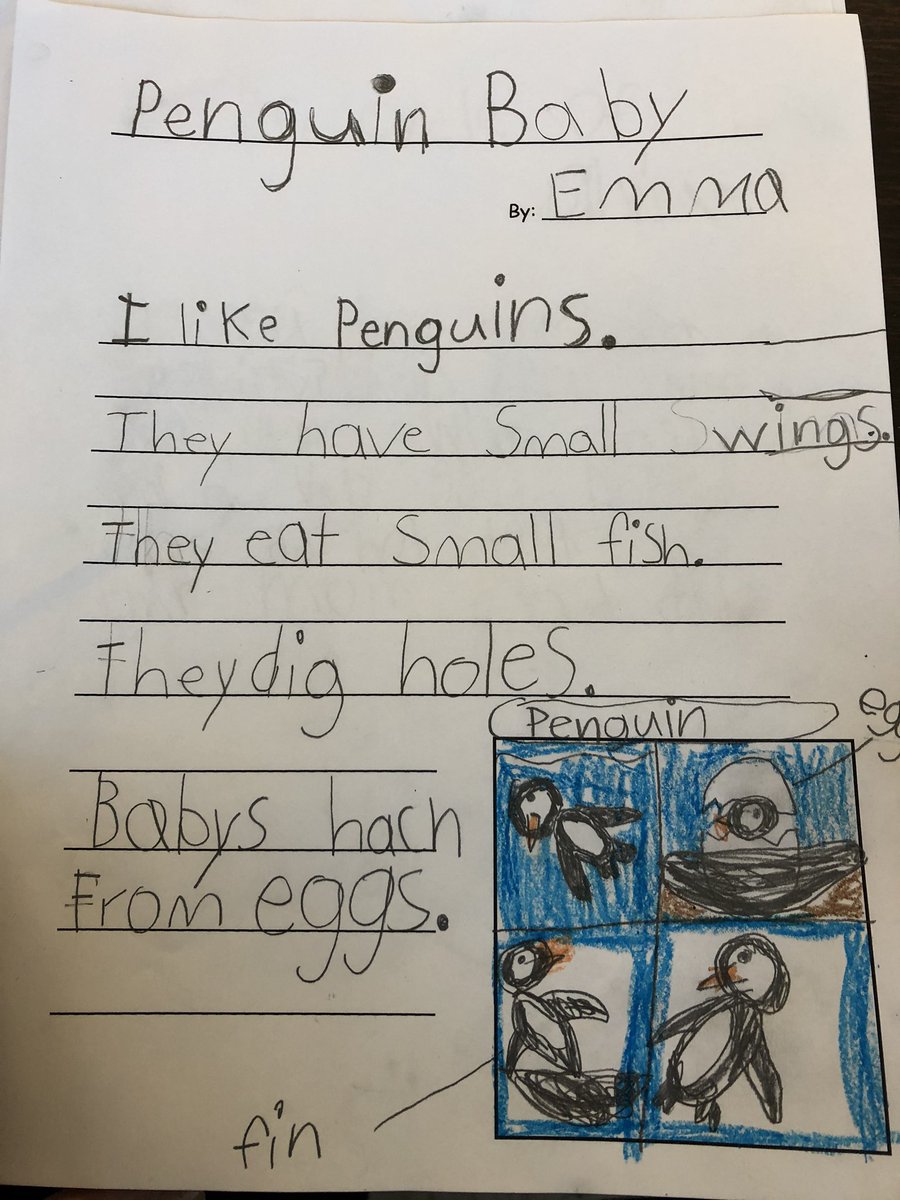 Penguin Baby
By: Emma
I like Penguins.
They have Small wings.
They eat Small fish.
They dig holes.
Penguin
eg
Babys hach
From eggs.
fin